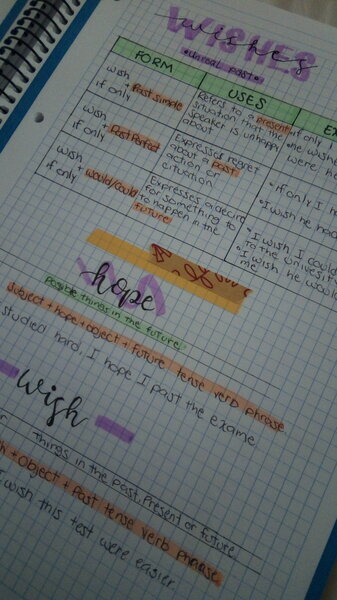 WISHES
wishes
• unreal past •
FORM USES EX
wish
if only + Past simple
Refers to a present
situation that the
speaker is unhappy
about
if only I
• he wishe
were; he
wish
if only + Past Perfect
Expresses regret
about a past
action or
situation
• if only I h
• I wish he had
wish
if only + would/could
Expresses a desire
for something to
to happen in the
future
• I wish I could
to the university
• I wish he would
me
hope
possible things in the future
subject + hope + object + future tense verb phrase
studied hard, I hope I past the exame.
Wish
things in the past, present or future
h + object + Past tense verb phrase
I wish this test were easier